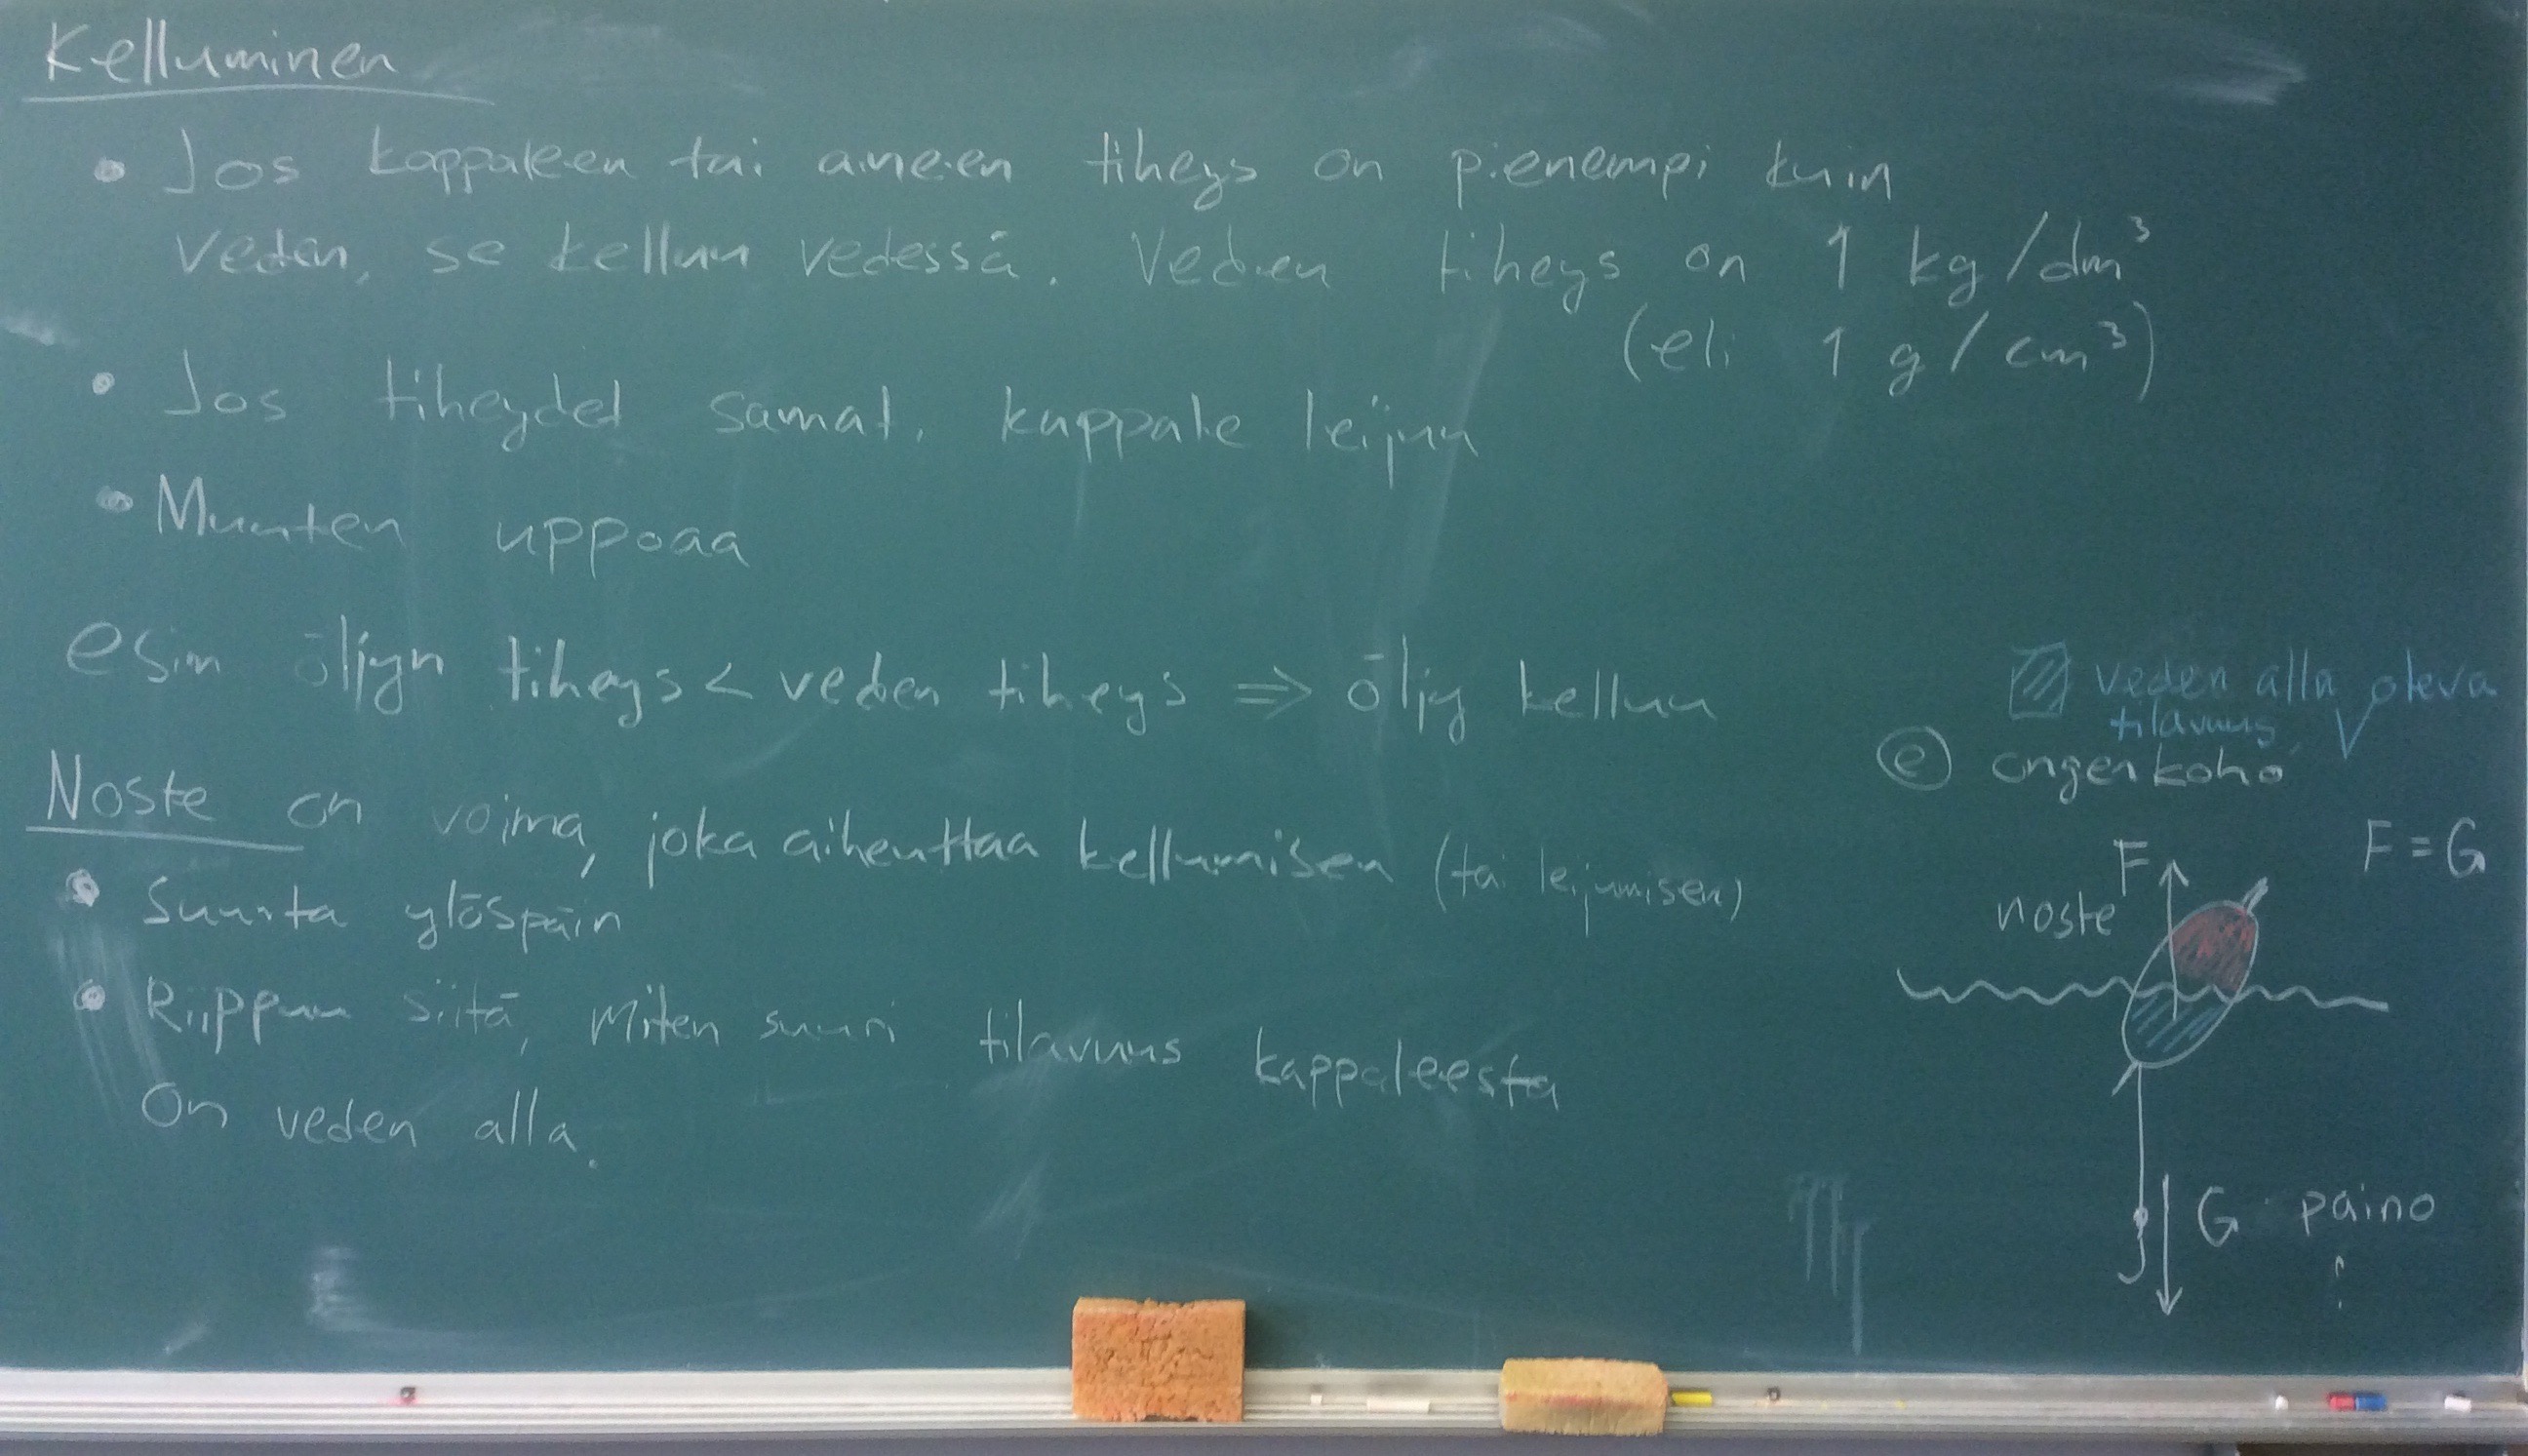 Kelluminen
• Jos kappaleen tai aineen tiheys on pienempi kuin
veden, se kelluu vedessä. Veden tiheys on 1 kg/dm³
(eli 1 g/cm³)
• Jos tiheydet samat, kappale leijuu
• Muuten uppoaa
esim öljyn tiheys < veden tiheys ⇒ öljy kelluu
Noste on voima, joka aiheuttaa kellumisen (tai leijumisen)
• Suunta ylöspäin
• Riippuu siitä, miten suuri tilavuus kappaleesta
on veden alla.
veden alla oleva
tilavuus, V
ⓔ ongenkoho
F = G
F
noste
G paino